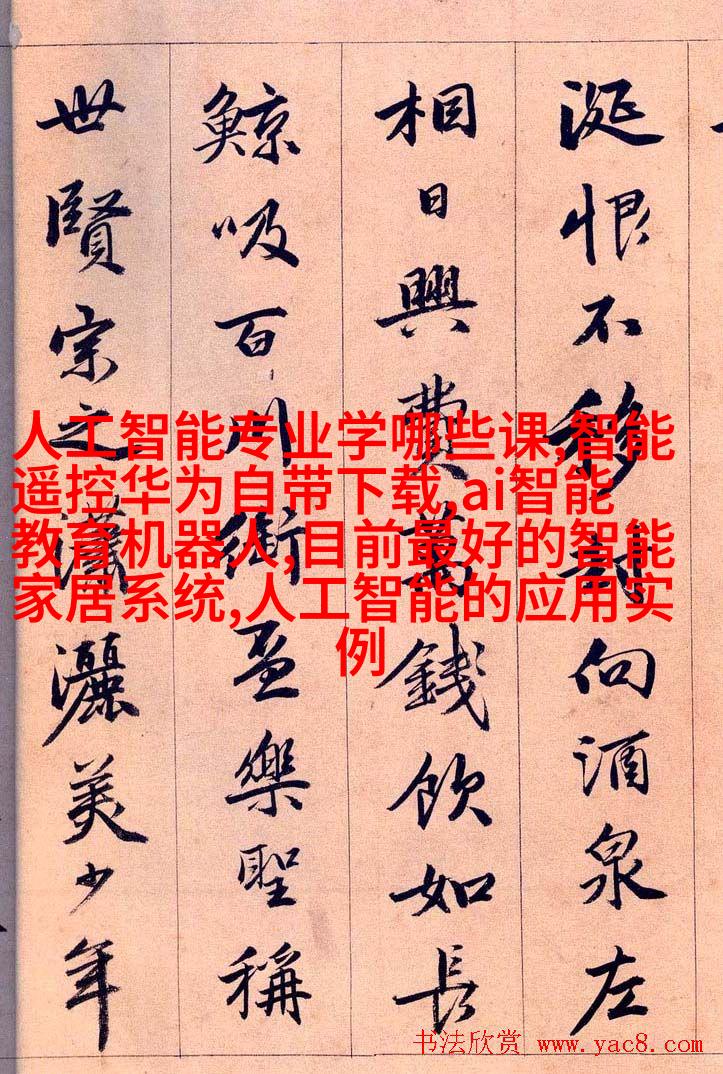 涎恨不移封向酒泉左
相日興費萬錢飲如長
鯨吸百川銜盃樂聖稱
世賢宗之瀟灑美少年
人工智能专业学哪些课,智能
遥控华为自带下载,ai智能
教育机器人,目前最好的智能
家居系统,人工智能的应用实
例
书法欣赏 www.yac8.com